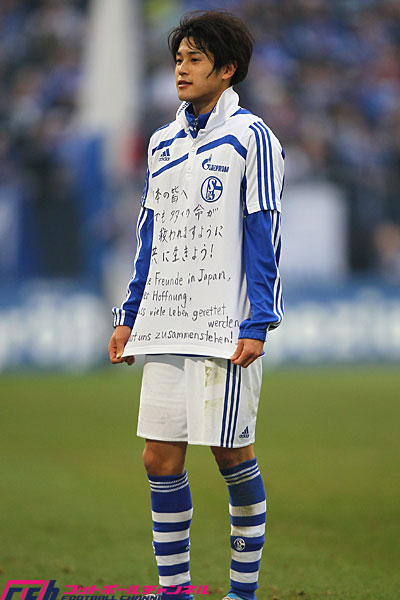 adidas
GAZPROM
本の皆へ
でも多くの命が
救われますように
共に生きよう!
e Freunde in Japan,
er Hoffnung,
ss viele Leben gerettet
werden
st uns zusammenstehen!
adidas
フットボールチャンネル
FOOTBALL CHANN